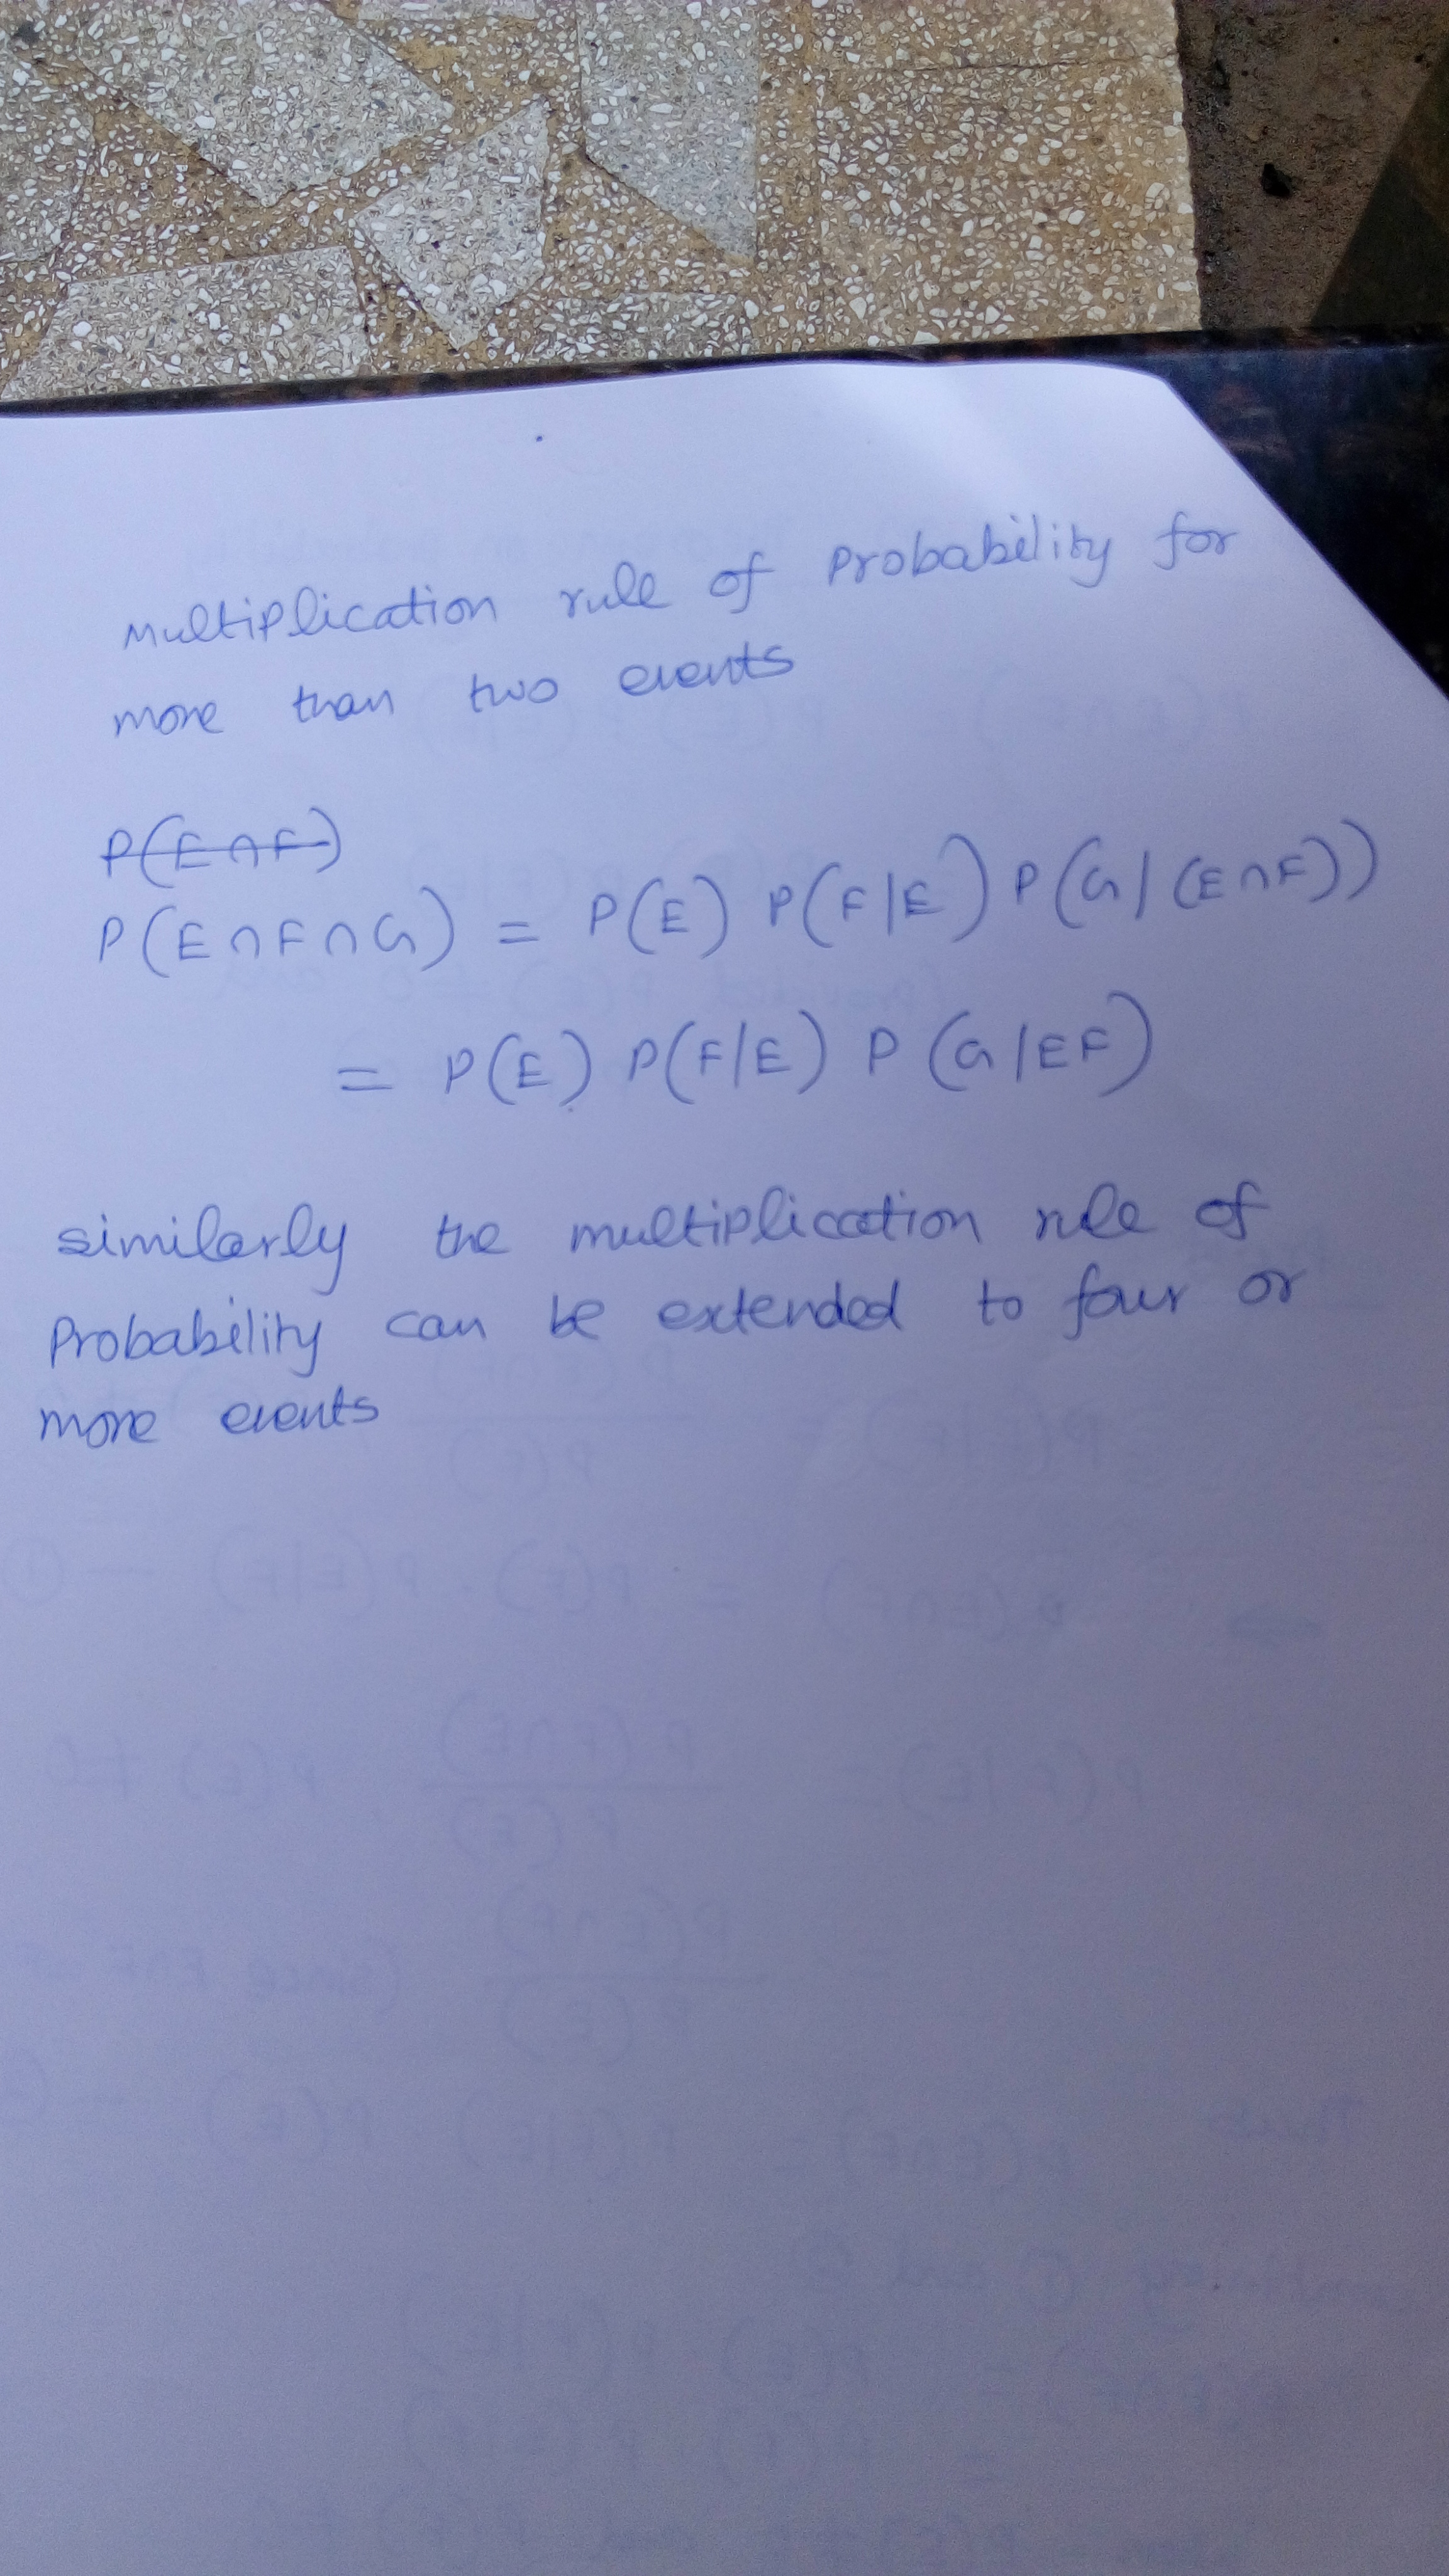 Multiplication rule of Probability for
more than two events
P(E∩F)
P(E∩F∩G) = P(E) P(F|E) P(G|(E∩F))
= P(E) P(F|E) P(G|EF)
similarly the multiplication rule of
Probability can be extended to four or
more events